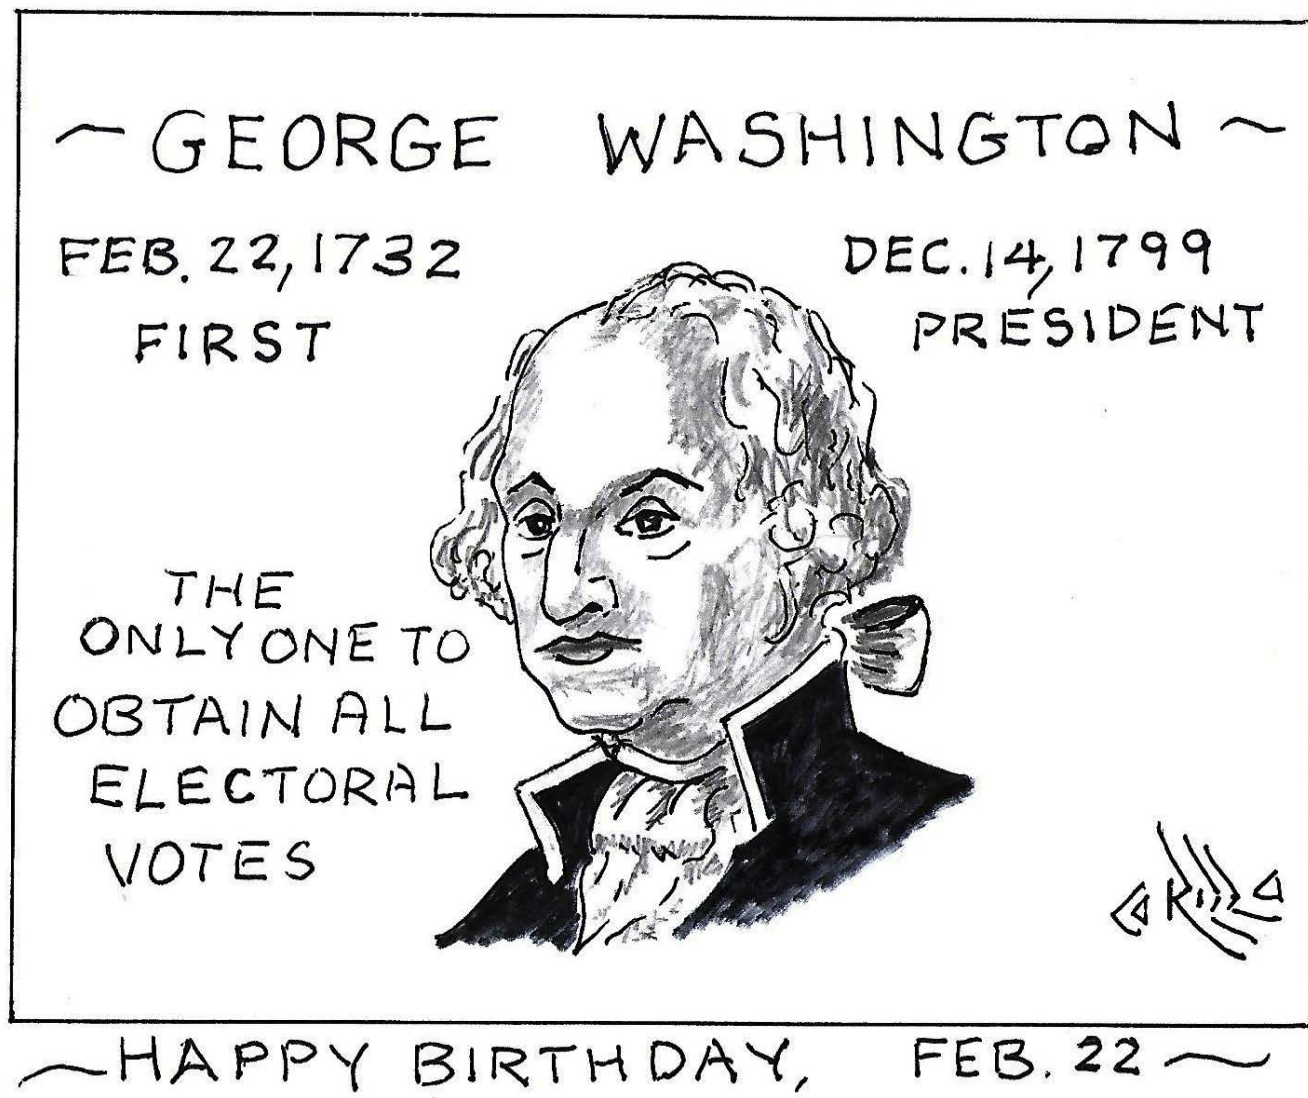 ~ GEORGE WASHINGTON ~
FEB. 22, 1732
FIRST
DEC. 14, 1799
PRESIDENT
THE
ONLY ONE TO
OBTAIN ALL
ELECTORAL
VOTES
~ HAPPY BIRTHDAY, FEB. 22 ~